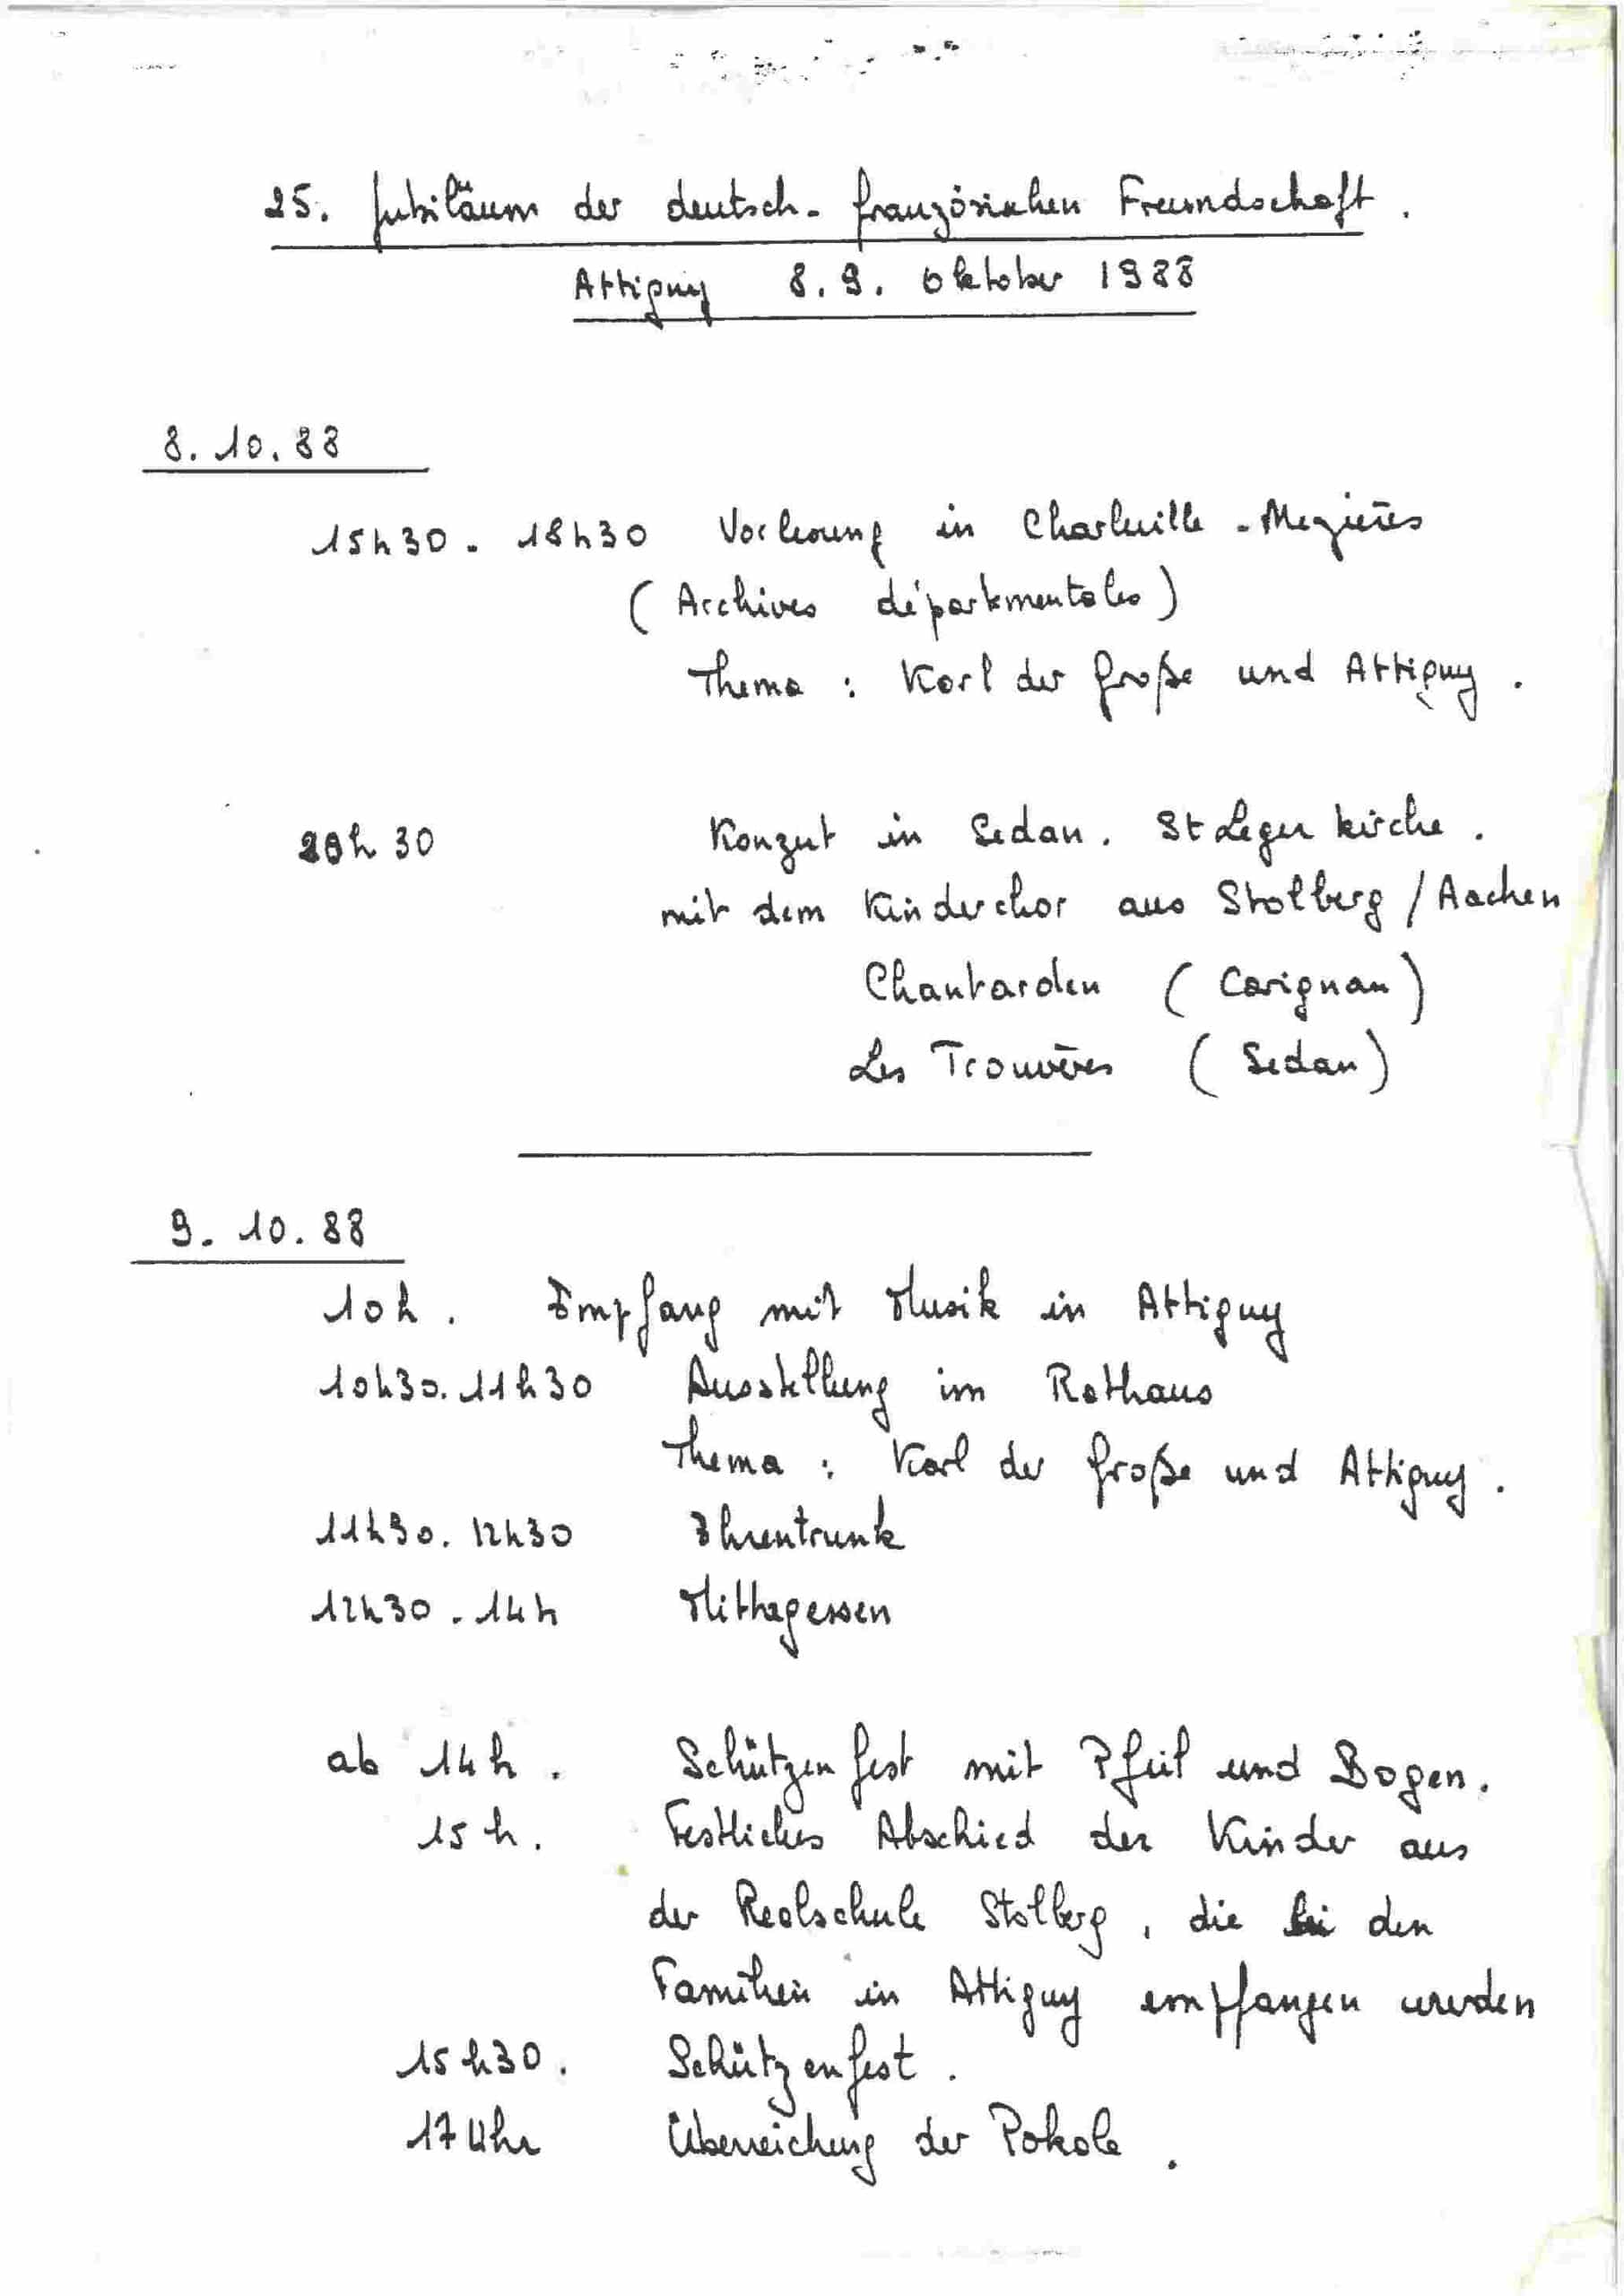 25. Jubiläum der deutsch-französischen Freundschaft.
Attigny 8.9. Oktober 1988
8.10.88
15h30 - 18h30 Vorlesung in Charleville-Mezières
(Archives départementales)
Thema : Karl der Große und Attigny.
20h30 Konzert in Sedan. St Leger Kirche.
mit dem Kinderchor aus Stolberg / Aachen
Chantarden (Carignan)
Les Trouvères (Sedan)
9.10.88
10h. Empfang mit Musik in Attigny
10h30.11h30 Ausstellung im Rathaus
Thema : Karl der Große und Attigny.
11h30.12h30 Ehrentrunk
12h30.14h Mittagessen
ab 14h. Schützenfest mit Pfeil und Bogen.
15h. Festliches Abschied der Kinder aus
der Realschule Stolberg, die bei den
Familien in Attigny empfangen wurden
15h30. Schützenfest.
17 Uhr Überreichung der Pokale.